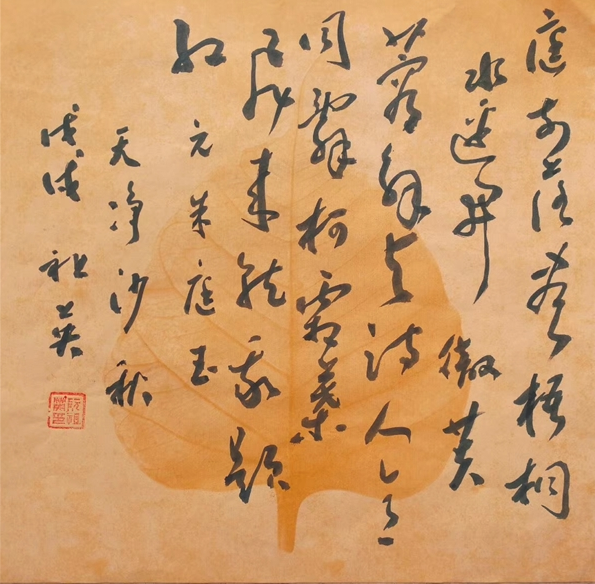 庭前落尽梧桐
水邊开徹芙
蓉解与诗人意
同辭柯霜葉
飛来就我題
红 元朱庭玉
天净沙秋
戊戌 祖英